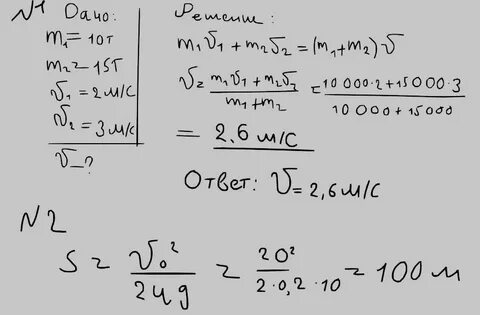 N1 Дано:
m₁ = 10т
m₂ = 15т
v₁ = 2 м/с
v₂ = 3 м/с
v - ?
Решение:
m₁v₁ + m₂v₂ = (m₁ + m₂) v
v = (m₁v₁ + m₂v₂) / (m₁ + m₂) = (10 000·2 + 15 000·3) / (10 000 + 15000)
= 2,6 м/с
Ответ: v = 2,6 м/с
N2
S = v₀² / 2μg = 20² / 2·0,2·10 = 100 м